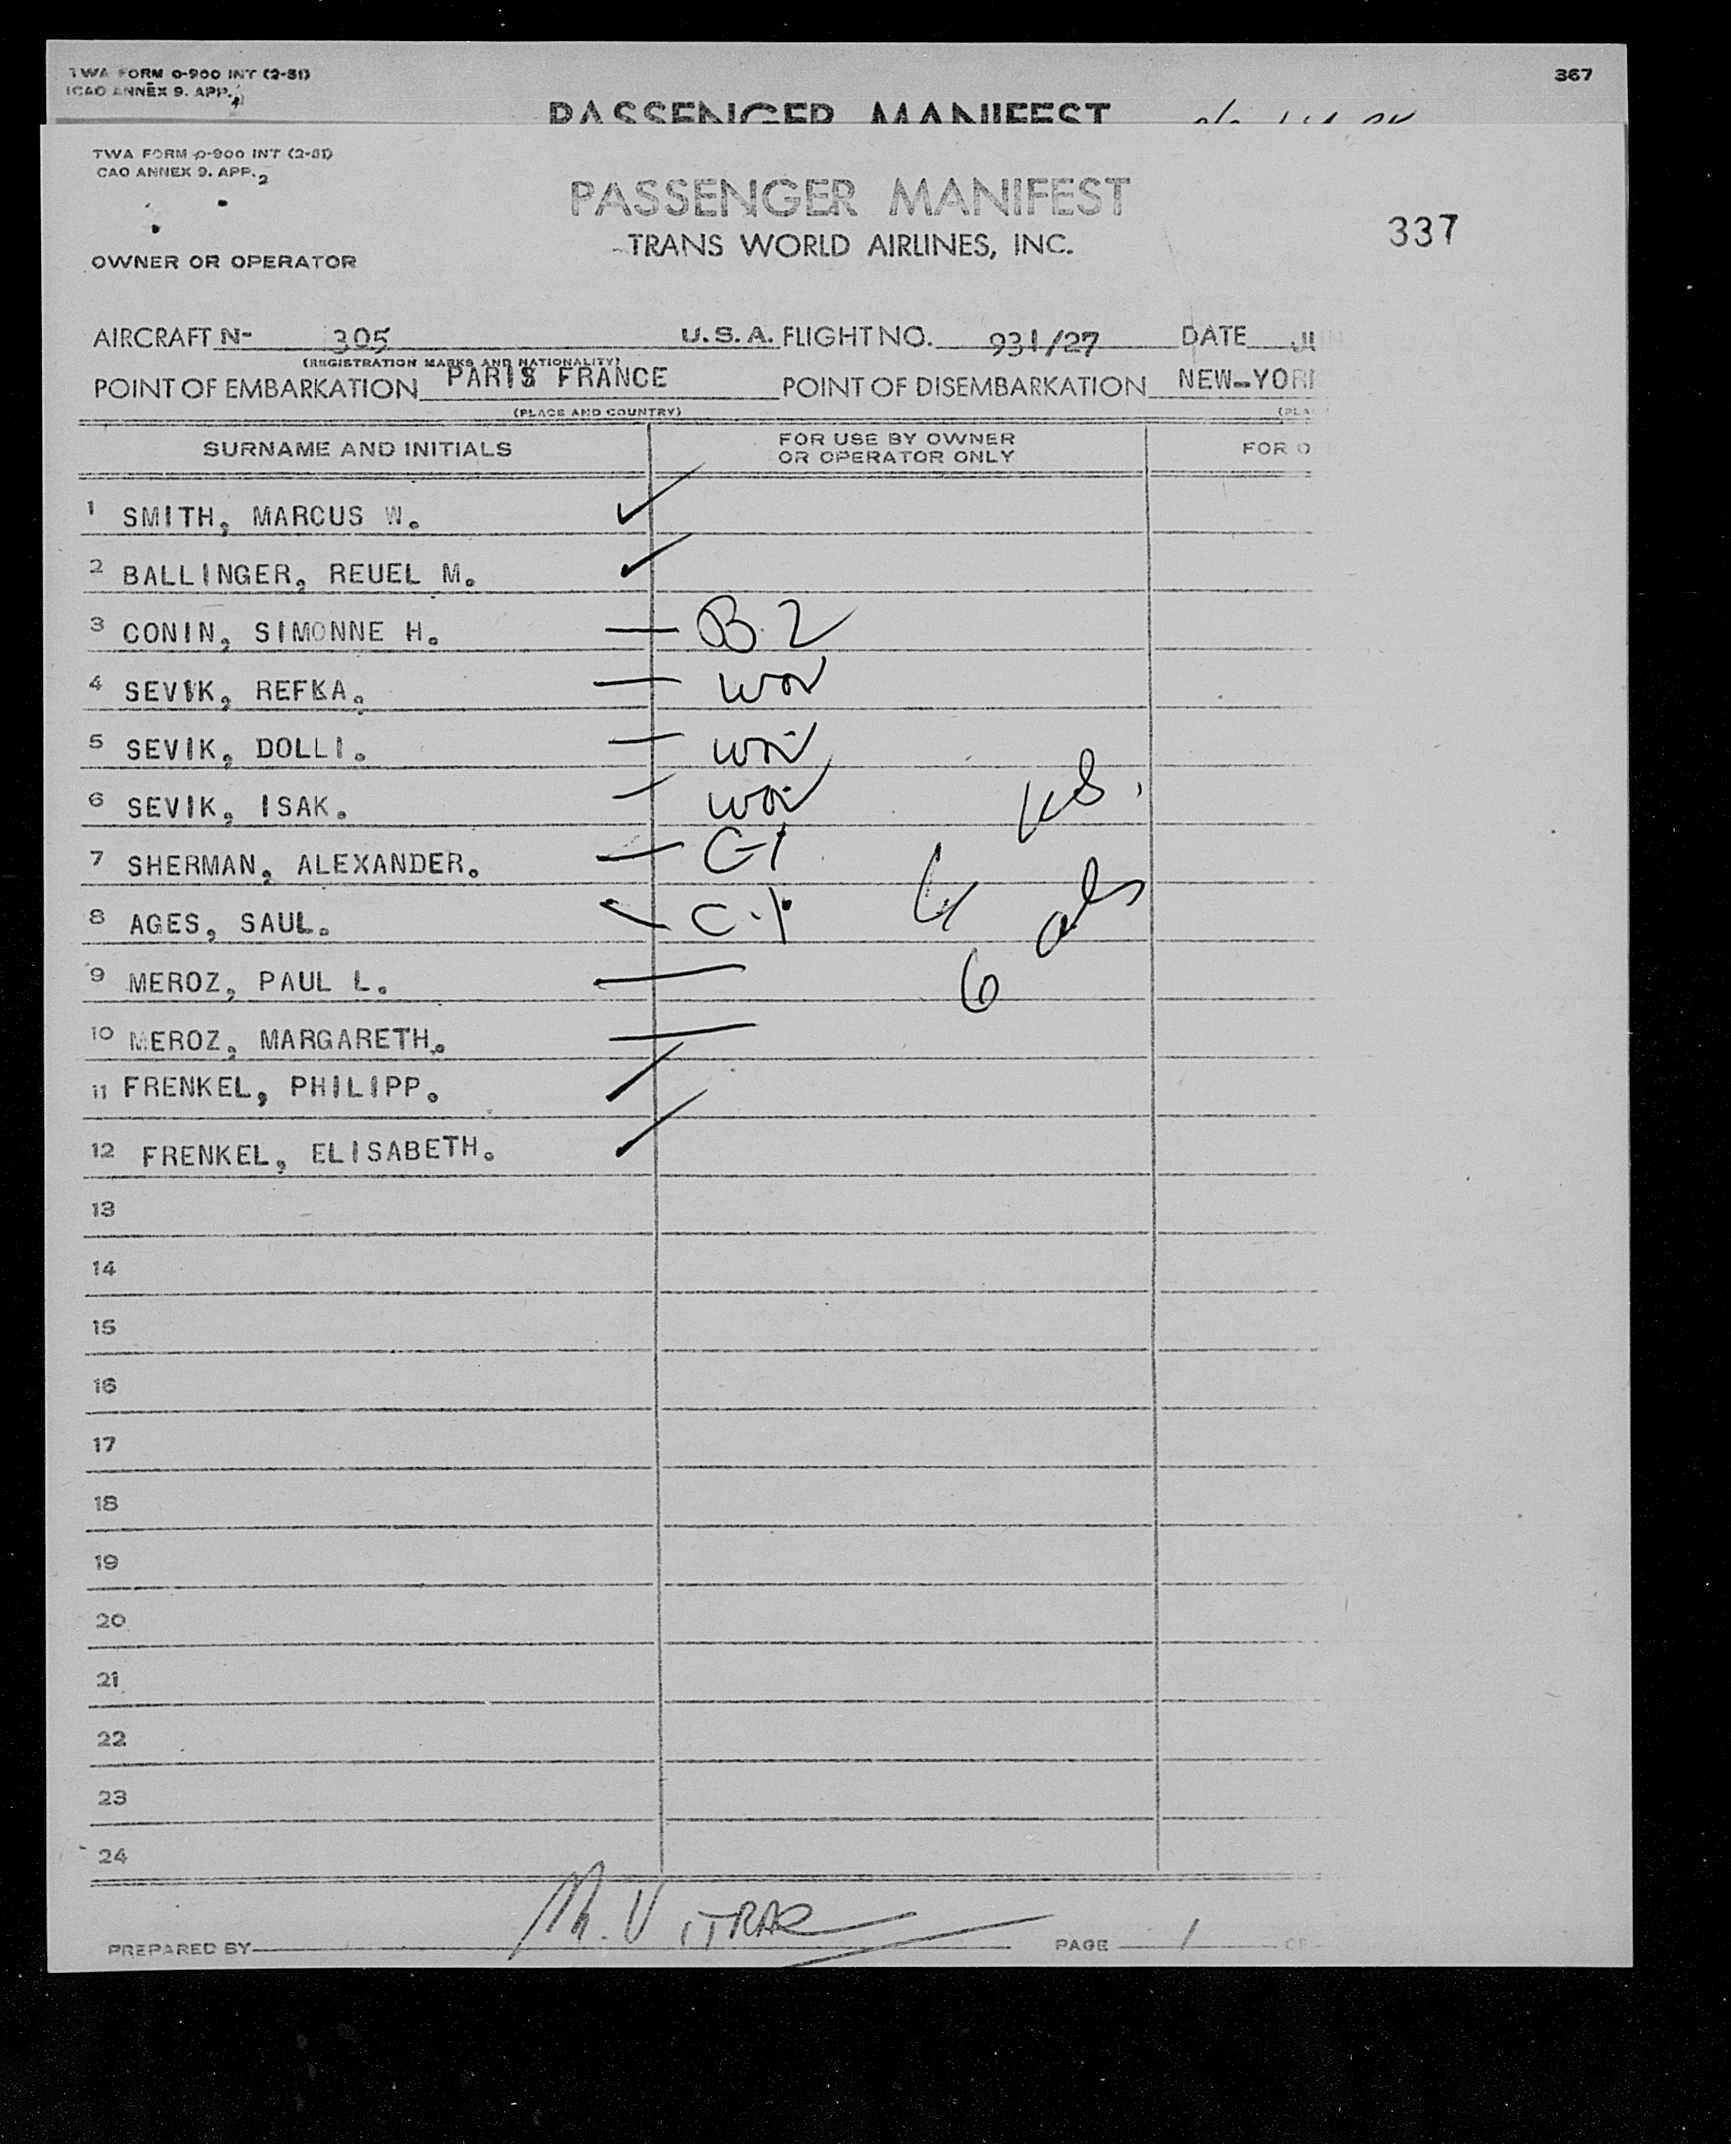 TWA FORM O-900 INT (2-51)
ICAO ANNEX 9. APP.
367
PASSENGER MANIFEST
TWA FORM O-900 INT (2-51)
CAO ANNEX 9. APP. 2
PASSENGER MANIFEST
TRANS WORLD AIRLINES, INC.
337
OWNER OR OPERATOR
AIRCRAFT N- 305 U.S.A. FLIGHT NO. 931/27 DATE JU
(REGISTRATION MARKS AND NATIONALITY)
POINT OF EMBARKATION PARIS FRANCE POINT OF DISEMBARKATION NEW-YOR
(PLACE AND COUNTRY) (PLA
SURNAME AND INITIALS FOR USE BY OWNER OR OPERATOR ONLY FOR O
1 SMITH, MARCUS W.
2 BALLINGER, REUEL M.
3 CONIN, SIMONNE H. B.2
4 SEVIK, REFKA.
5 SEVIK, DOLLI.
6 SEVIK, ISAK.
7 SHERMAN, ALEXANDER.
8 AGES, SAUL.
9 MEROZ, PAUL L. 6
10 MEROZ, MARGARETH.
11 FRENKEL, PHILIPP.
12 FRENKEL, ELISABETH.
13
14
15
16
17
18
19
20
21
22
23
24
PREPARED BY M. VITRAC PAGE 1 OF